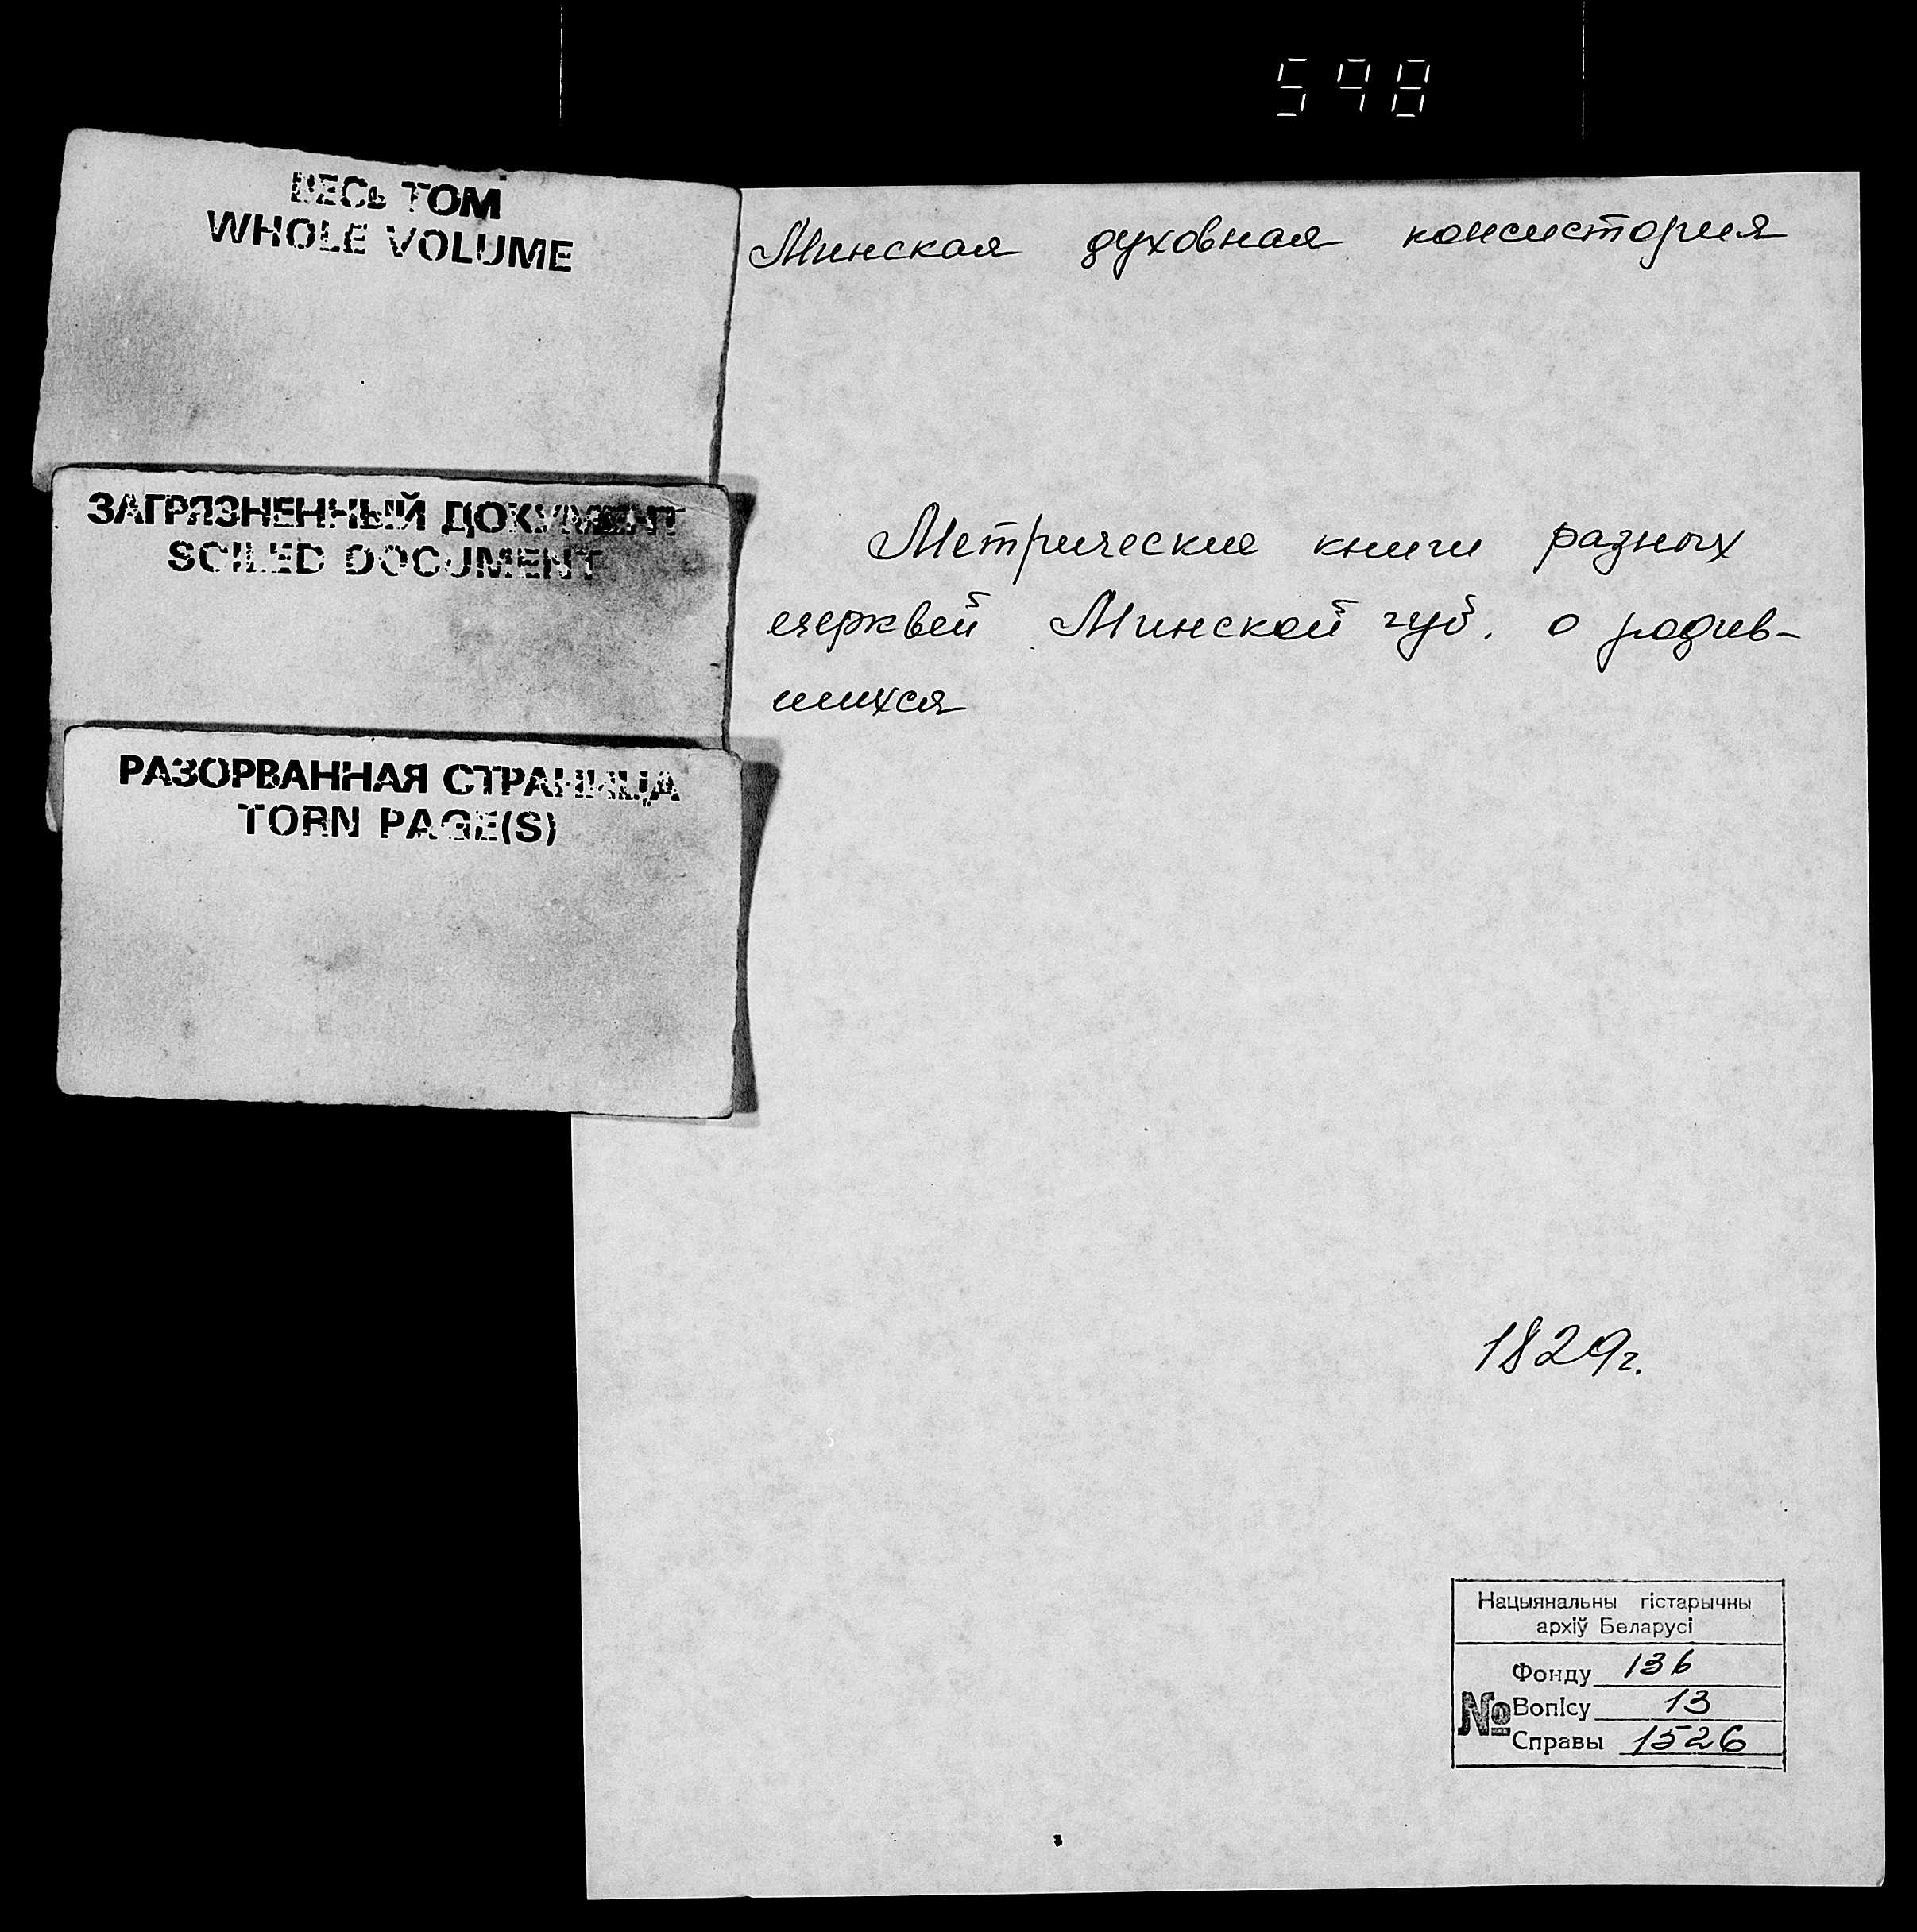 598
ВЕСЬ ТОМ
WHOLE VOLUME
ЗАГРЯЗНЕННЫЙ ДОКУМЕНТ
SOILED DOCUMENT
РАЗОРВАННАЯ СТРАНИЦА
TORN PAGE(S)
Минская духовная консистория
Метрические книги разных
церквей Минской губ. о родив-
шихся
1829г.
Нацыянальны гістарычны
архіў Беларусі
Фонду 136
№ Вопісу 13
Справы 1526